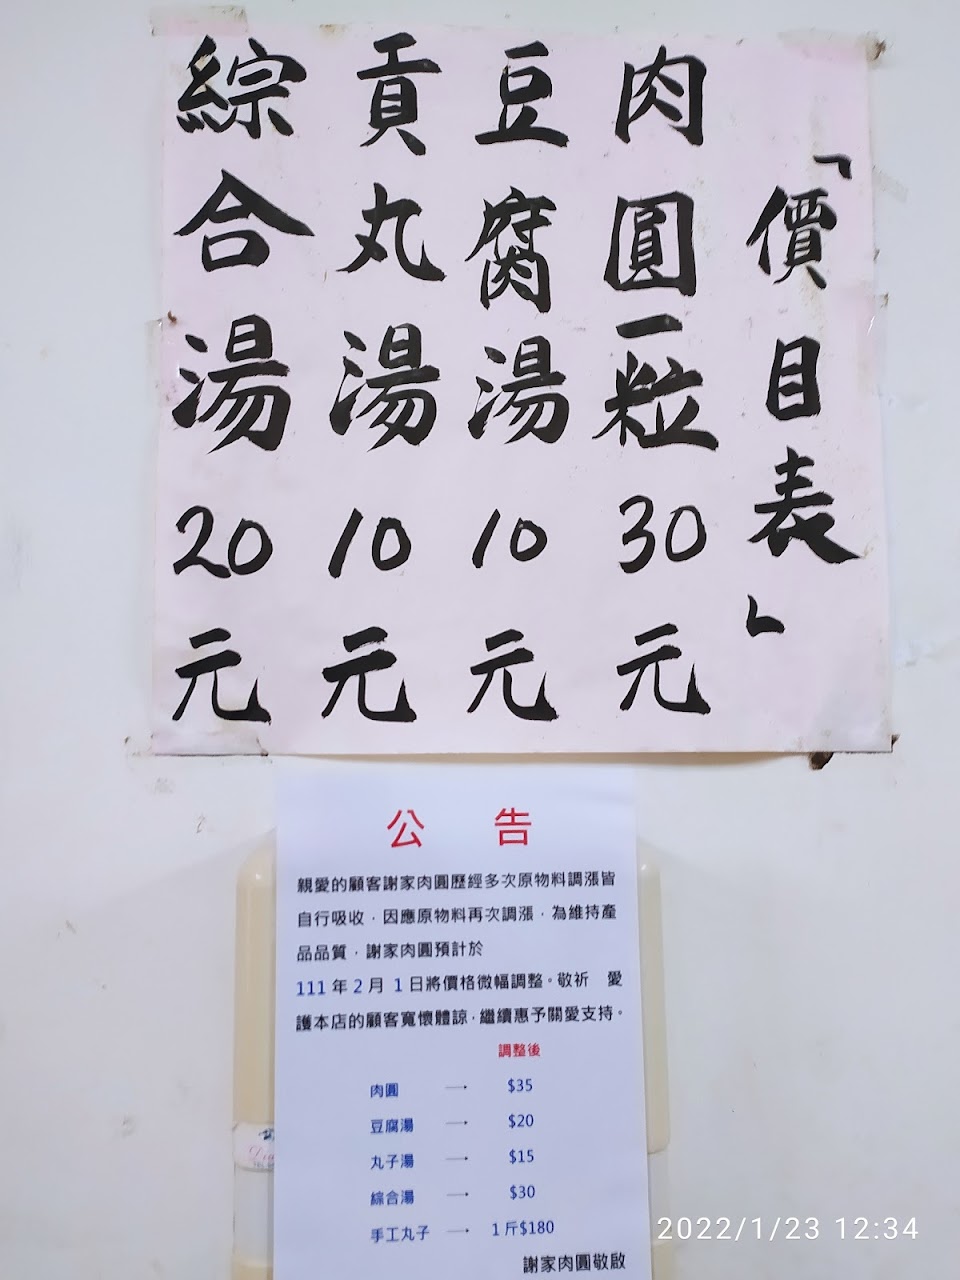 「價目表」
肉圓一粒30元
豆腐湯10元
貢丸湯10元
綜合湯20元
公 告
親愛的顧客謝家肉圓歷經多次原物料調漲皆
自行吸收，因應原物料再次調漲，為維持產
品品質，謝家肉圓預計於
111年2月1日將價格微幅調整。敬祈 愛
護本店的顧客寬懷體諒，繼續惠予關愛支持。
調整後
肉圓 → $35
豆腐湯 → $20
丸子湯 → $15
綜合湯 → $30
手工丸子 → 1斤$180
謝家肉圓敬啟
2022/1/23 12:34